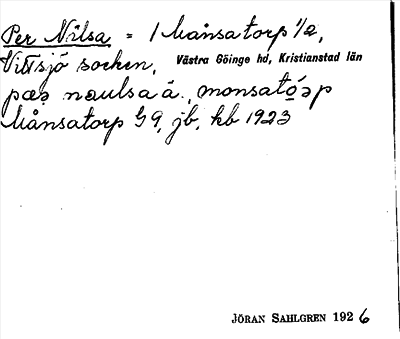 Per Nilsa = 1 Månsatorp 1/2,
Vittsjö socken, Västra Göinge hd, Kristianstad län
pæɂ naulsa å, monsatǫ́ɂp
Månsatorp G 9, jb, kb 1923
JÖRAN SAHLGREN 1926